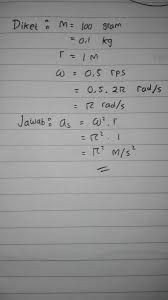 Diket : m = 100 gram
= 0.1 kg
r = 1 M
ω = 0.5 rps
= 0.5 . 2π rad/s
= π rad/s
Jawab : as = ω² . r
= π² . 1
= π² m/s²